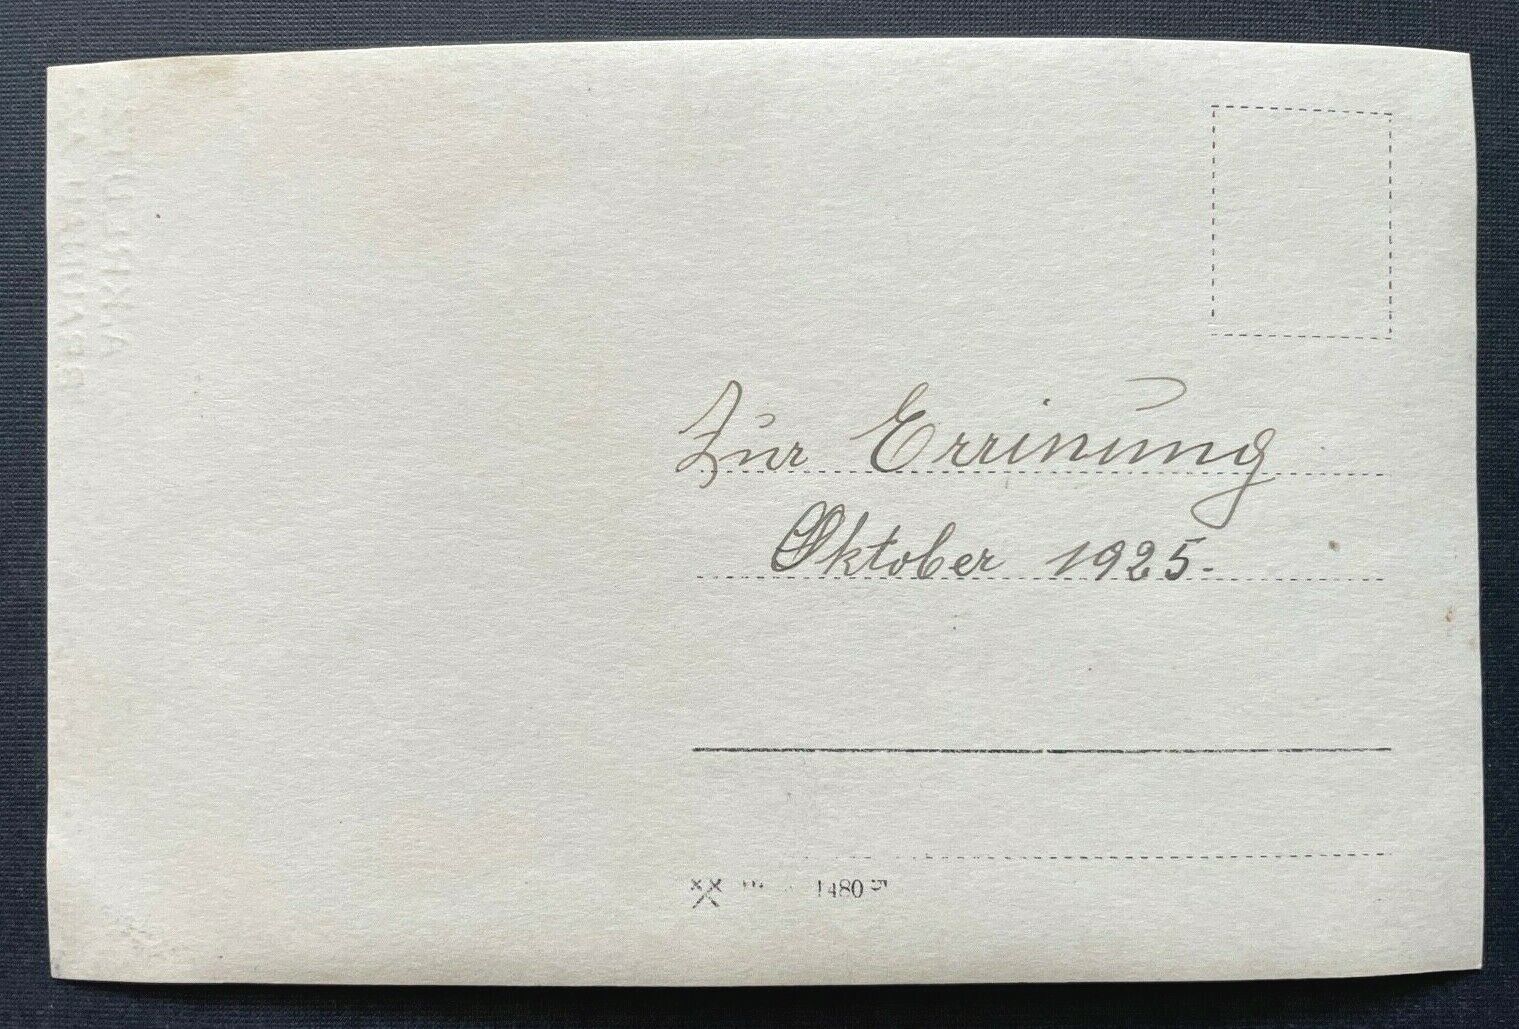 Zur Errinung
Oktober 1925.
1480